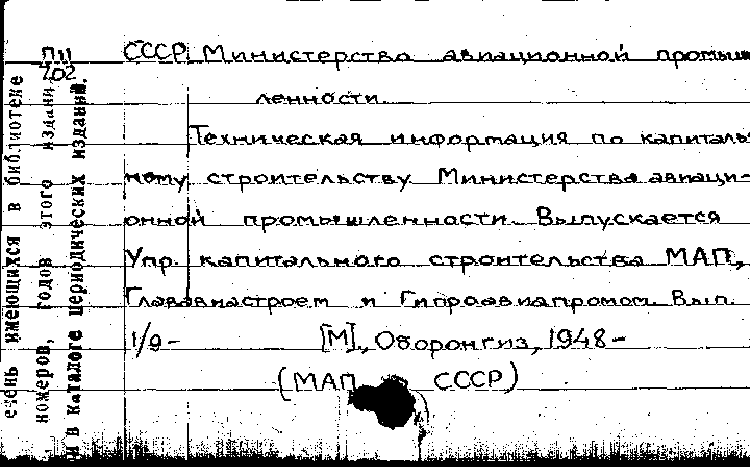 П11
702
СССР. Министерство авиационной промыш-
ленности.
Техническая информация по капиталь-
ному строительству Министерства авиаци-
онной промышленности. Выпускается
Упр. капитального строительства МАП,
Главависстроем и Гипроавиапромом. Вып.
1/9- [М]., Оборонгиз, 1948-
(МАП СССР)
ечень имеющихся в библиотеке
номеров, годов этого издани
и в каталоге периодических изданий.